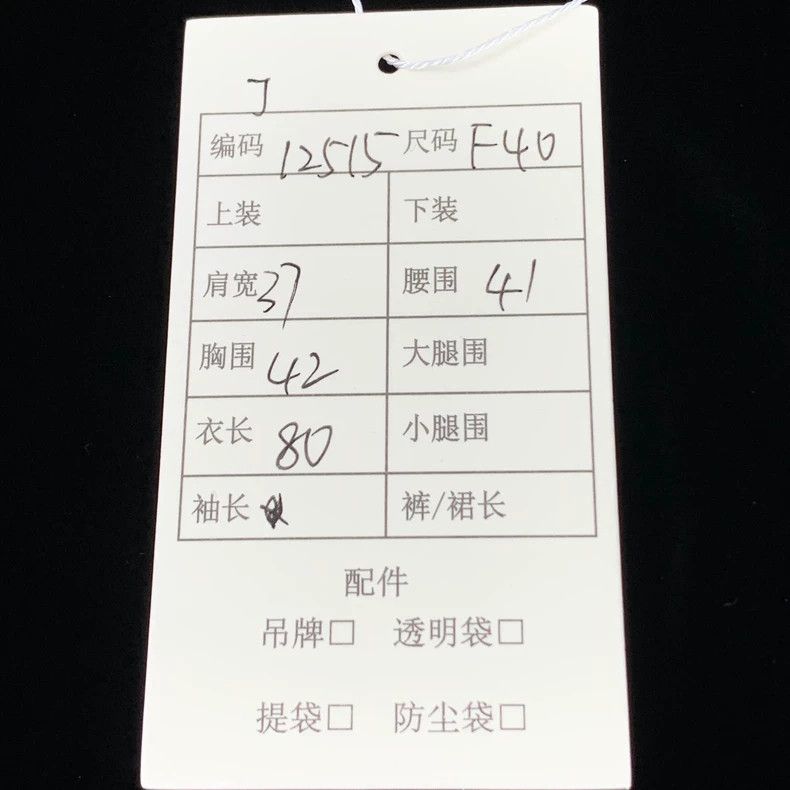 J
编码 12515 尺码 F40
上装 下装
肩宽 37 腰围 41
胸围 42 大腿围
衣长 80 小腿围
袖长 裤/裙长
配件
吊牌□ 透明袋□
提袋□ 防尘袋□